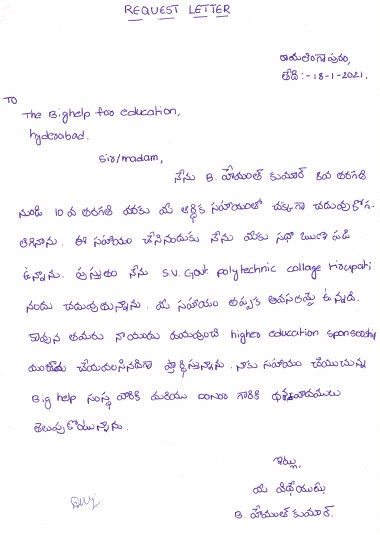 REQUEST LETTER
రాయలింగాపురం,
తేది :- 18-1-2021.
TO
The Bighelp for education,
hyderabad.
Sir/madam,
నేను B. హేమంత్ కుమార్ 6వ తరగతి
నుండి 10 వ తరగతి వరకు మీ ఆర్థిక సహాయంతో చక్కగా చదువుకోగ-
లిగినాను. ఈ సహాయం చేసినందుకు నేను మీకు సదా ఋణ పడి
ఉన్నాను. ప్రస్తుతం నేను S.V. Govt polytechnic collage tirupati
నందు చదువుతున్నాను. మీ సహాయం తప్పక అవసరమై ఉన్నది.
కావున తమరు నాయందు దయవుంచి higher education sponsership
చేయవలసినదిగా ప్రార్థిస్తున్నాను. నాకు సహాయం చేయుచున్న
Big help సంస్థ వారికి మరియు గారికి ధన్యవాదములు
తెలుపుకోయున్నాను.
ఇట్లు,
మీ విధేయుడు
B. హేమంత్ కుమార్.